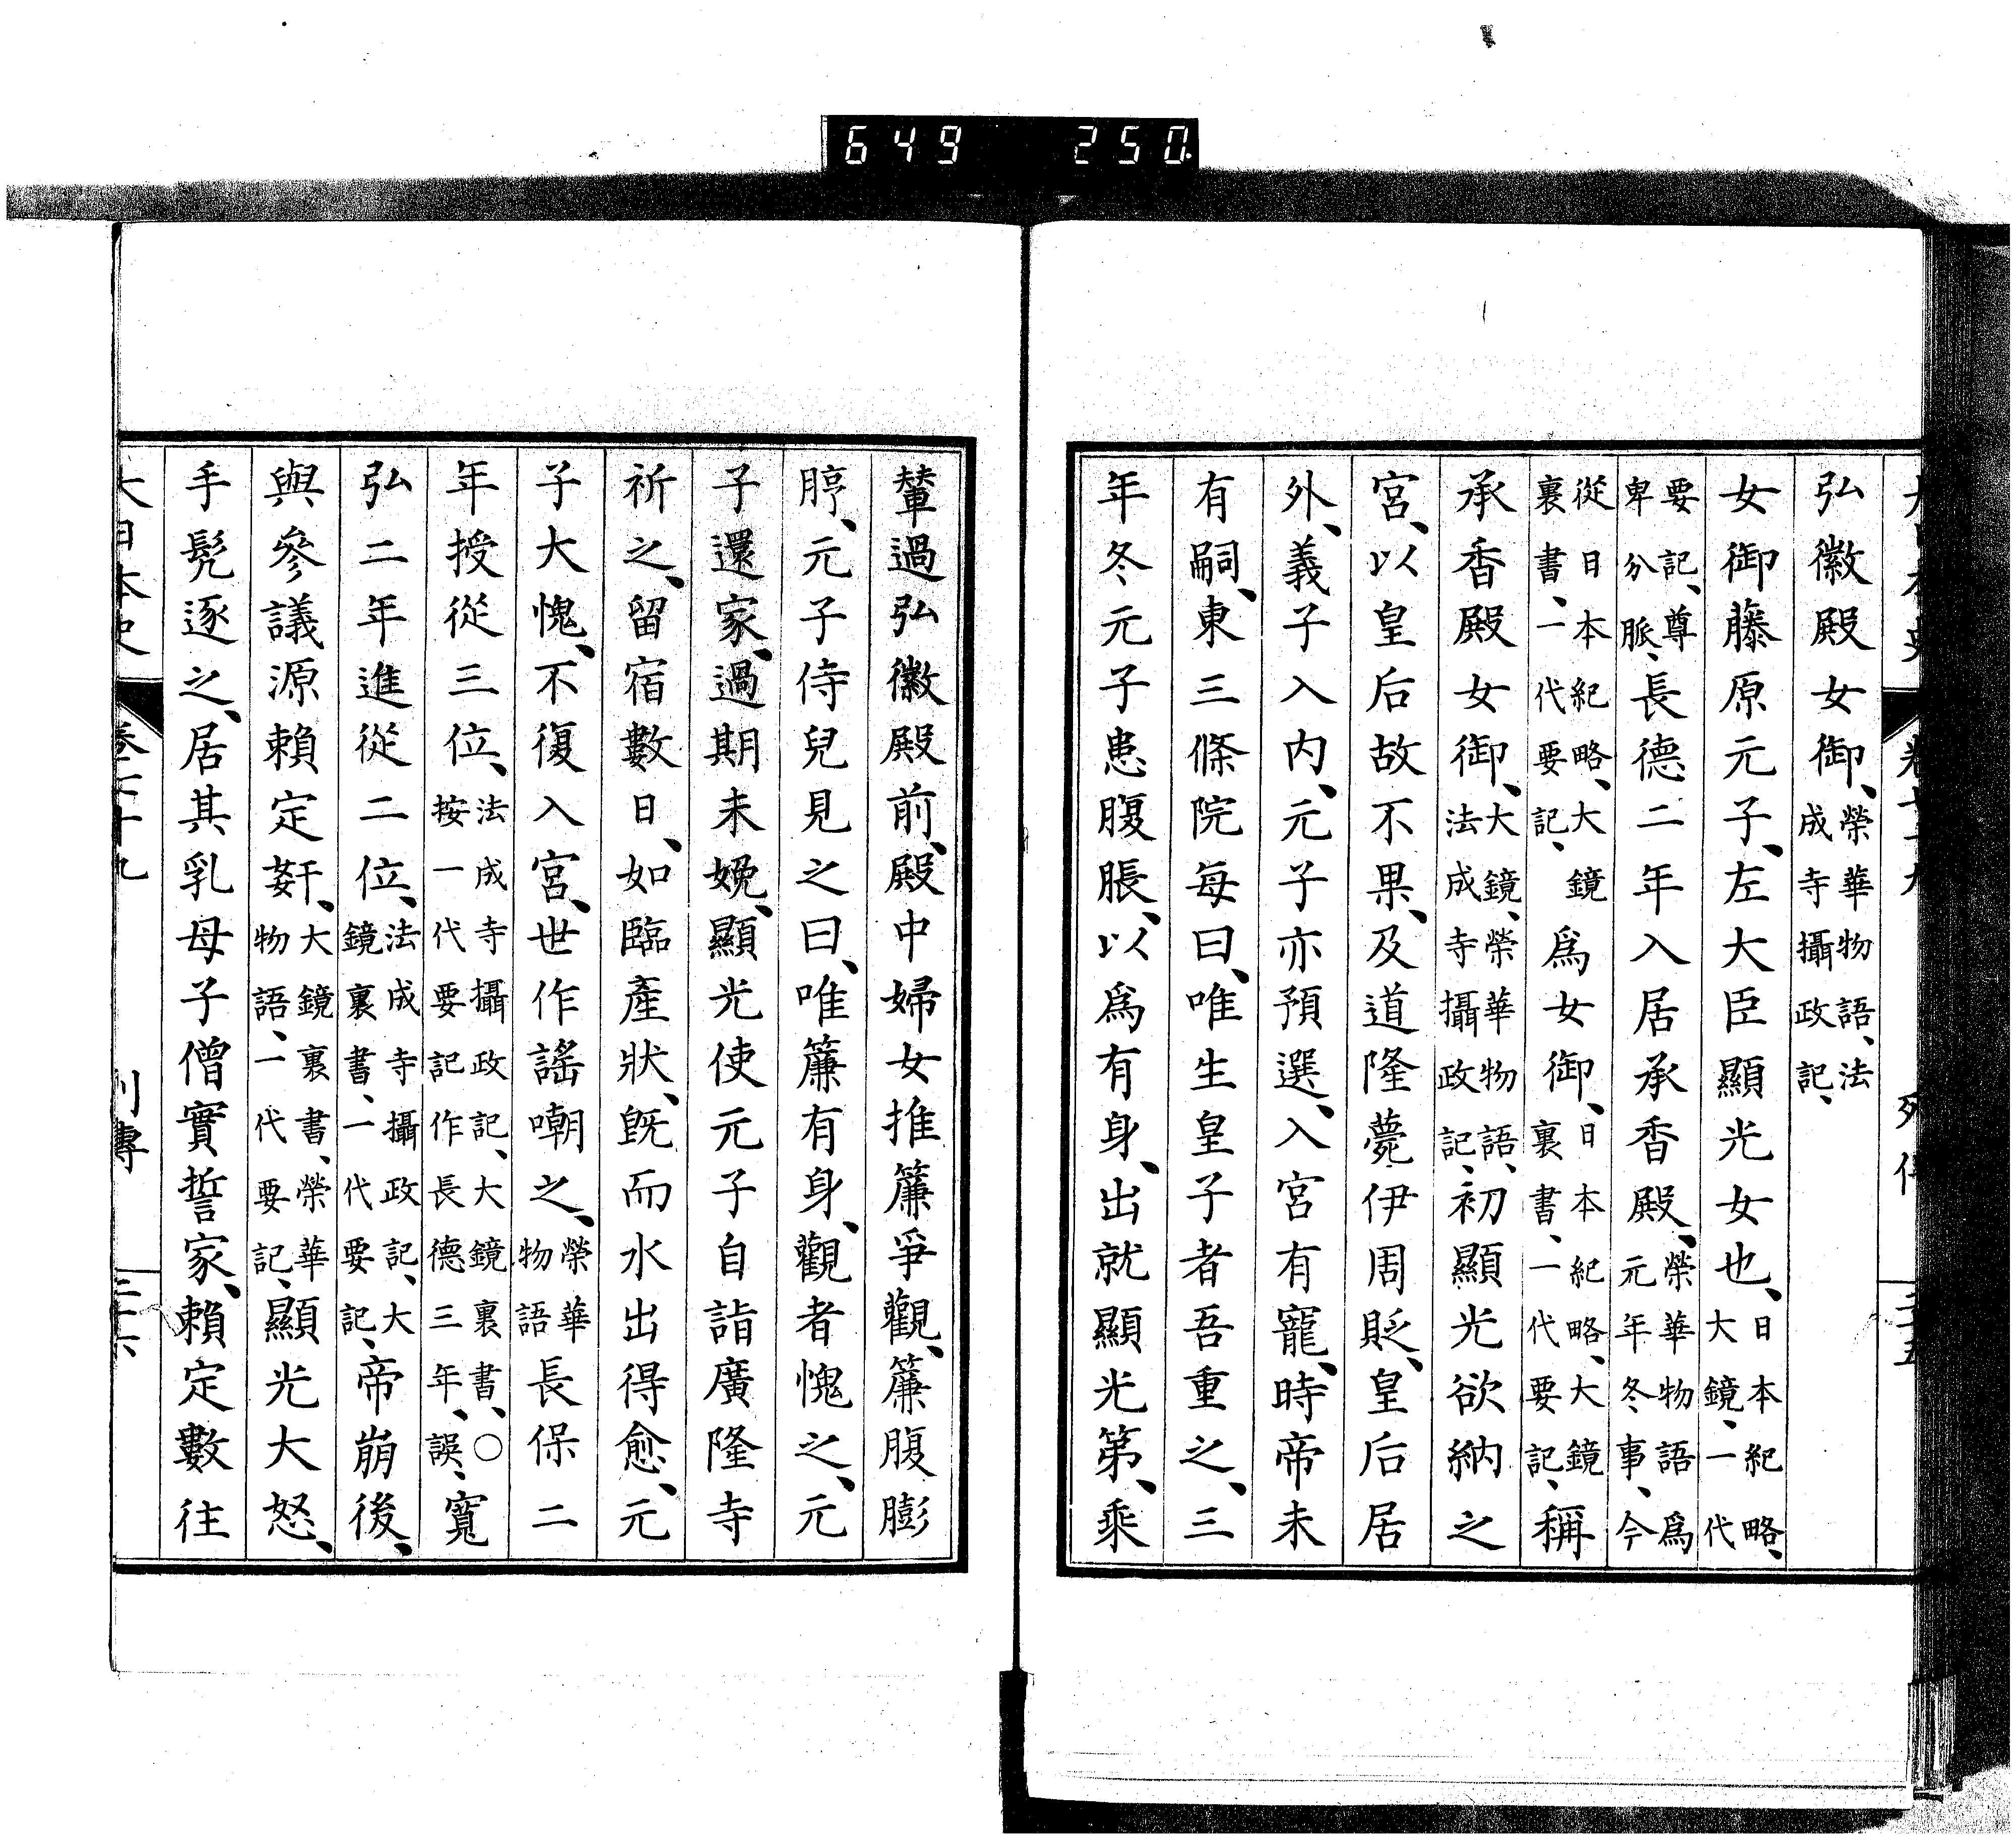 649 250
大日本史 卷七十九 列傳 二十五
弘徽殿女御、榮華物語、法成寺攝政記、
女御藤原元子、左大臣顯光女也、日本紀略、大鏡、一代
要記、尊卑分脈、長德二年入居承香殿、榮華物語爲元年冬事、今
從日本紀略、大鏡裏書、一代要記、爲女御、日本紀略、大鏡裏書、一代要記、稱
承香殿女御、大鏡、榮華物語、法成寺攝政記、初顯光欲納之
宮、以皇后故不果、及道隆薨伊周貶、皇后居
外、義子入内、元子亦預選、入宮有寵、時帝未
有嗣、東三條院每曰、唯生皇子者吾重之、三
年冬元子患腹脹、以爲有身、出就顯光第、乘
輦過弘徽殿前、殿中婦女推簾爭觀、簾腹膨
脝、元子侍兒見之曰、唯簾有身、觀者愧之、元
子還家、過期未娩、顯光使元子自詣廣隆寺
祈之、留宿數日、如臨產狀、旣而水出得愈、元
子大愧、不復入宮、世作謠嘲之、榮華物語長保二
年授從三位、法成寺攝政記、大鏡裏書、○按一代要記作長德三年、誤、寬
弘二年進從二位、法成寺攝政記、大鏡裏書、一代要記、帝崩後、
與參議源賴定姧、大鏡裏書、榮華物語、一代要記、顯光大怒、
手髡逐之、居其乳母子僧實誓家、賴定數往
大日本史 卷七十九 列傳 二十六